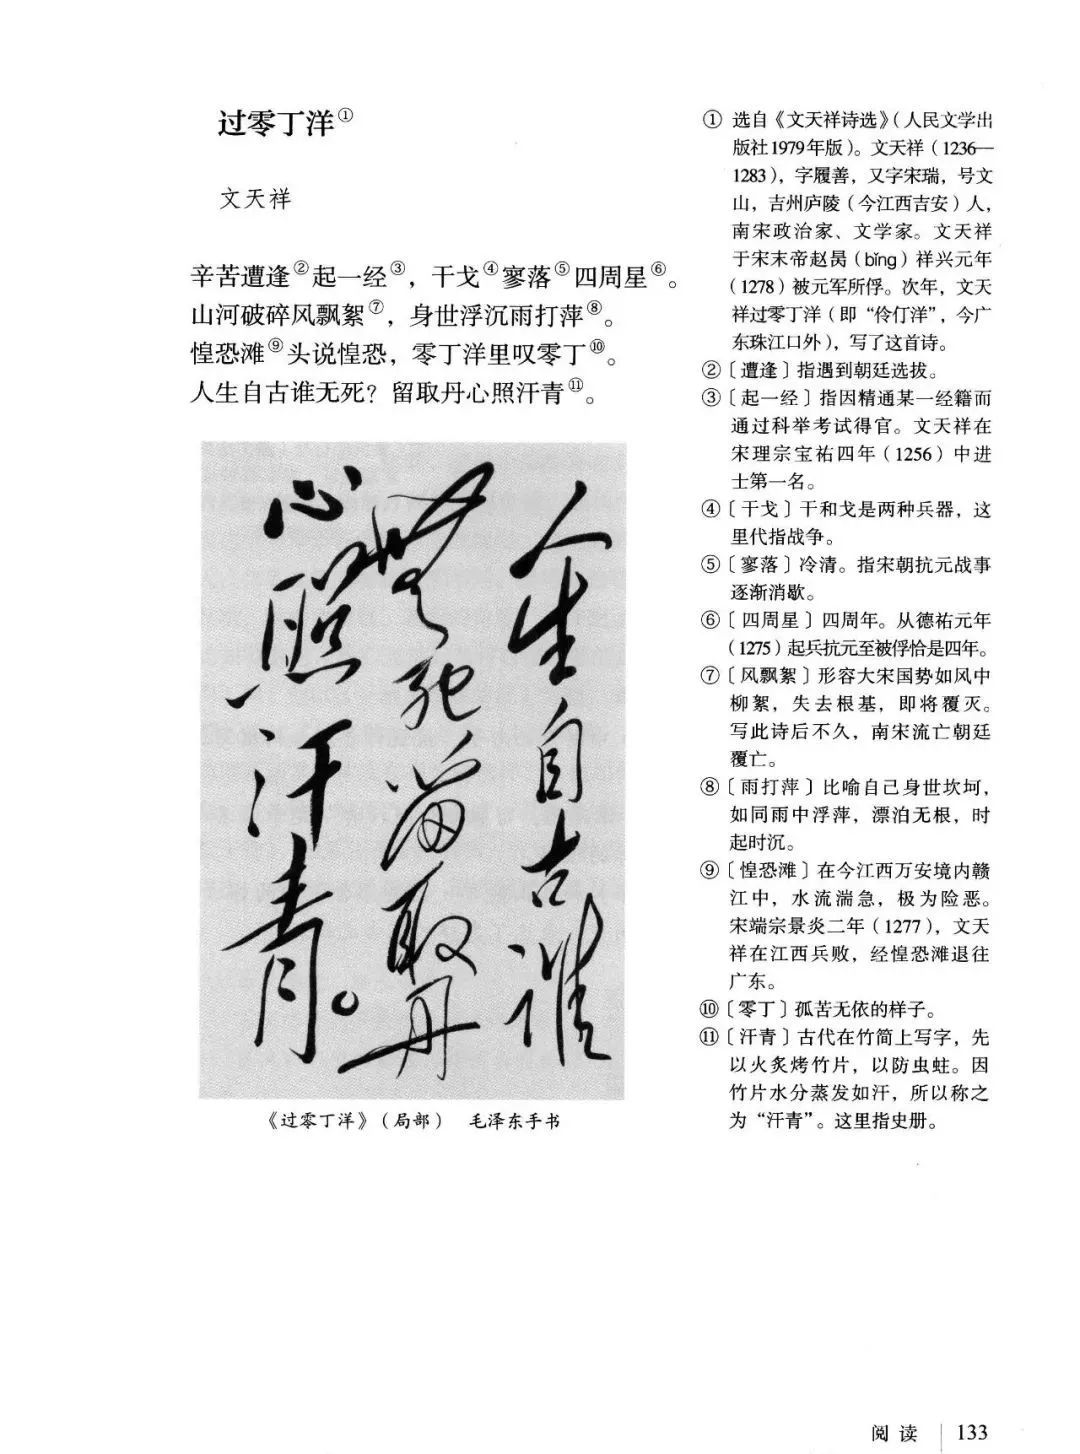 过零丁洋①
文天祥
辛苦遭逢②起一经③，干戈④寥落⑤四周星⑥。
山河破碎风飘絮⑦，身世浮沉雨打萍⑧。
惶恐滩⑨头说惶恐，零丁洋里叹零丁⑩。
人生自古谁无死？留取丹心照汗青⑪。
人生自古谁
无死留取丹
心照汗青。
《过零丁洋》（局部）　毛泽东手书
① 选自《文天祥诗选》（人民文学出
版社1979年版）。文天祥（1236—
1283），字履善，又字宋瑞，号文
山，吉州庐陵（今江西吉安）人，
南宋政治家、文学家。文天祥
于宋末帝赵昺（bǐng）祥兴元年
（1278）被元军所俘。次年，文天
祥过零丁洋（即“伶仃洋”，今广
东珠江口外），写了这首诗。
②〔遭逢〕指遇到朝廷选拔。
③〔起一经〕指因精通某一经籍而
通过科举考试得官。文天祥在
宋理宗宝祐四年（1256）中进
士第一名。
④〔干戈〕干和戈是两种兵器，这
里代指战争。
⑤〔寥落〕冷清。指宋朝抗元战事
逐渐消歇。
⑥〔四周星〕四周年。从德祐元年
（1275）起兵抗元至被俘恰是四年。
⑦〔风飘絮〕形容大宋国势如风中
柳絮，失去根基，即将覆灭。
写此诗后不久，南宋流亡朝廷
覆亡。
⑧〔雨打萍〕比喻自己身世坎坷，
如同雨中浮萍，漂泊无根，时
起时沉。
⑨〔惶恐滩〕在今江西万安境内赣
江中，水流湍急，极为险恶。
宋端宗景炎二年（1277），文天
祥在江西兵败，经惶恐滩退往
广东。
⑩〔零丁〕孤苦无依的样子。
⑪〔汗青〕古代在竹简上写字，先
以火炙烤竹片，以防虫蛀。因
竹片水分蒸发如汗，所以称之
为“汗青”。这里指史册。
阅读 133